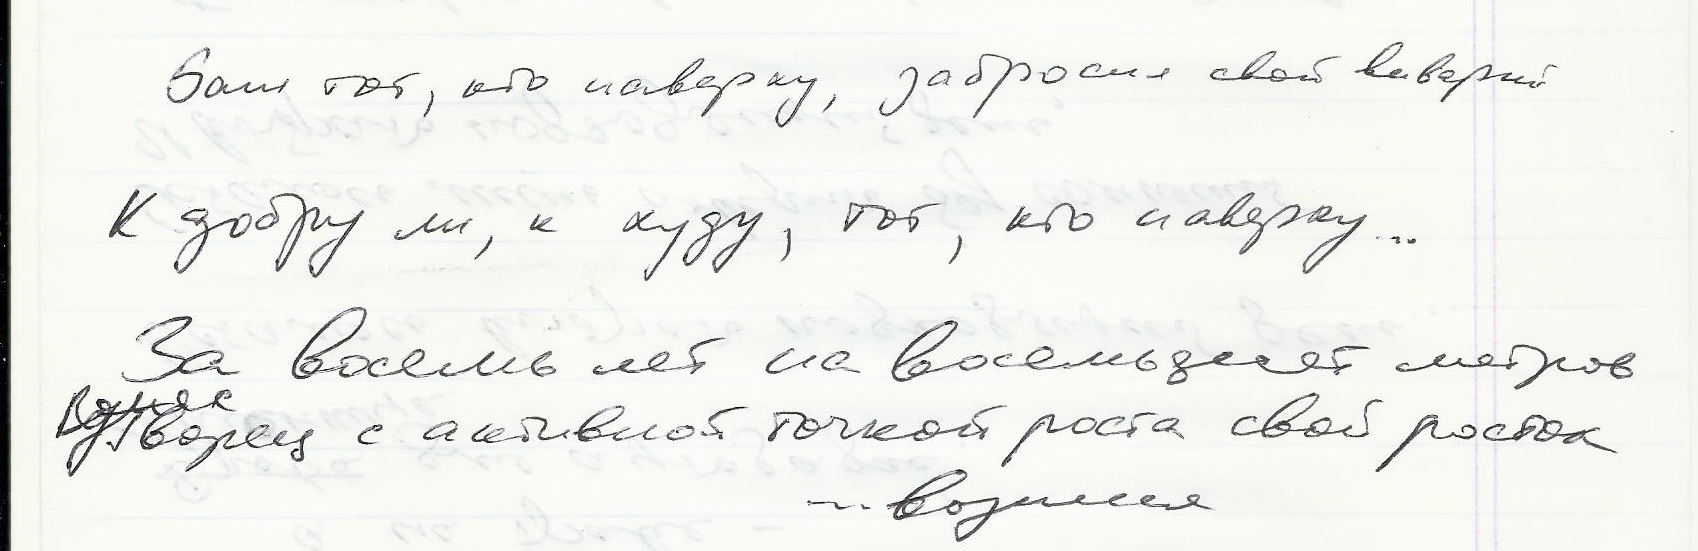 тот, кто наверху, забросил свой
К добру ли, к худу, тот, кто наверху...
За восемь лет на восемьдесят метров
Творец с активной точкой роста свой росток
... возился